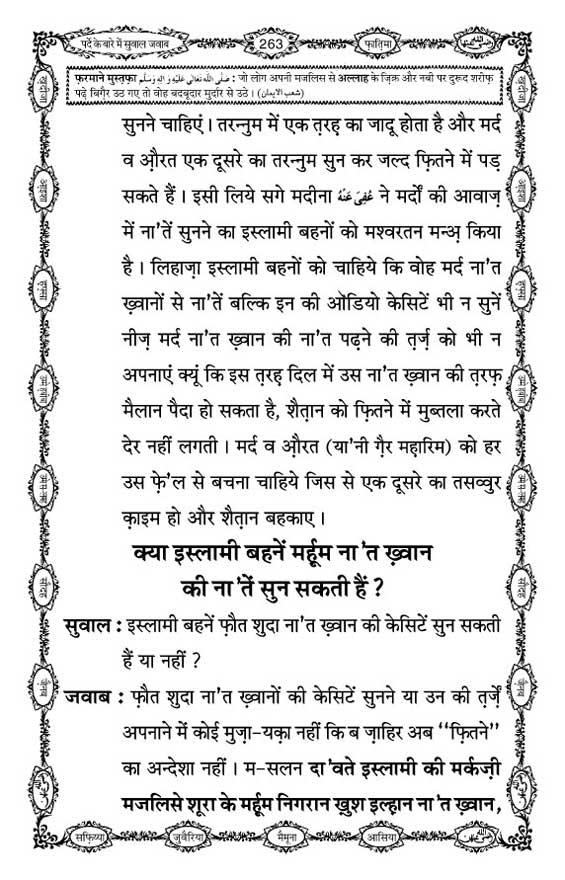 पर्दे के बारे में सुवाल जवाब
263
फ़ातिमा
फ़रमाने मुस्तफ़ा صَلَّى اللّٰهُ تَعَالٰى عَلَيْهِ وَاٰلِهٖ وَسَلَّم : जो लोग अपनी मजलिस से अल्लाह के ज़िक्र और नबी पर दुरूद शरीफ़
पढ़े बिग़ैर उठ गए तो वोह बदबूदार मुर्दार से उठे । (شعب الایمان)
सुनने चाहिएं । तरन्नुम में एक त़रह का जादू होता है और मर्द
व औ़रत एक दूसरे का तरन्नुम सुन कर जल्द फ़ितने में पड़
सकते हैं । इसी लिये सगे मदीना عُفِیَ عَنْهُ ने मर्दों की आवाज़
में ना'तें सुनने का इस्लामी बहनों को मश्वरतन मन्अ़ किया
है । लिहाज़ा इस्लामी बहनों को चाहिये कि वोह मर्द ना'त
ख़्वानों से ना'तें बल्कि इन की ऑडियो केसिटें भी न सुनें
नीज़ मर्द ना'त ख़्वान की ना'त पढ़ने की त़र्ज़ को भी न
अपनाएं क्यूं कि इस त़रह़ दिल में उस ना'त ख़्वान की त़रफ़
मैलान पैदा हो सकता है, शैत़ान को फ़ितने में मुब्तला करते
देर नहीं लगती । मर्द व औ़रत (या'नी ग़ैर महारिम) को हर
उस फ़े'ल से बचना चाहिये जिस से एक दूसरे का तसव्वुर
क़ाइम हो और शैत़ान बहकाए ।
क्या इस्लामी बहनें मर्हूम ना'त ख़्वान
की ना'तें सुन सकती हैं ?
सुवाल : इस्लामी बहनें फ़ौत शुदा ना'त ख़्वान की केसिटें सुन सकती
हैं या नहीं ?
जवाब : फ़ौत शुदा ना'त ख़्वानों की केसिटें सुनने या उन की त़र्ज़ें
अपनाने में कोई मुज़ा-यक़ा नहीं कि ब ज़ाहिर अब ‘‘फ़ितने’’
का अन्देशा नहीं । म-सलन दा'वते इस्लामी की मर्कज़ी
मजलिसे शूरा के मर्हूम निगरान ख़ुश इल्हान ना'त ख़्वान,
सफ़िय्या
जुवैरिया
मैमूना
आसिया